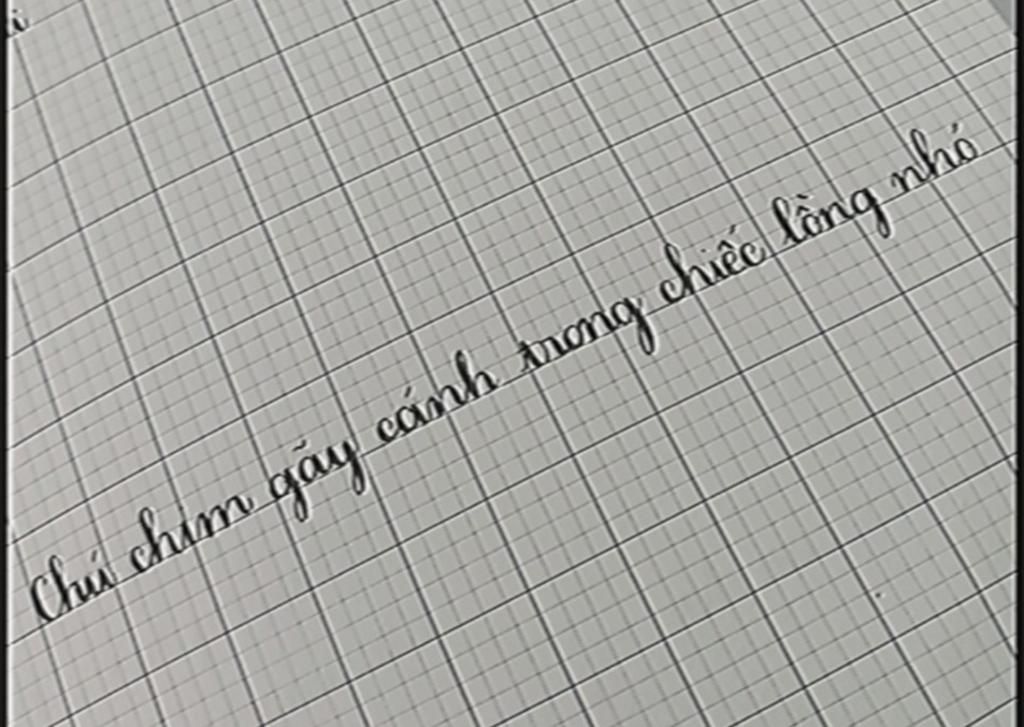 Chú chim gãy cánh trong chiếc lồng nhỏ